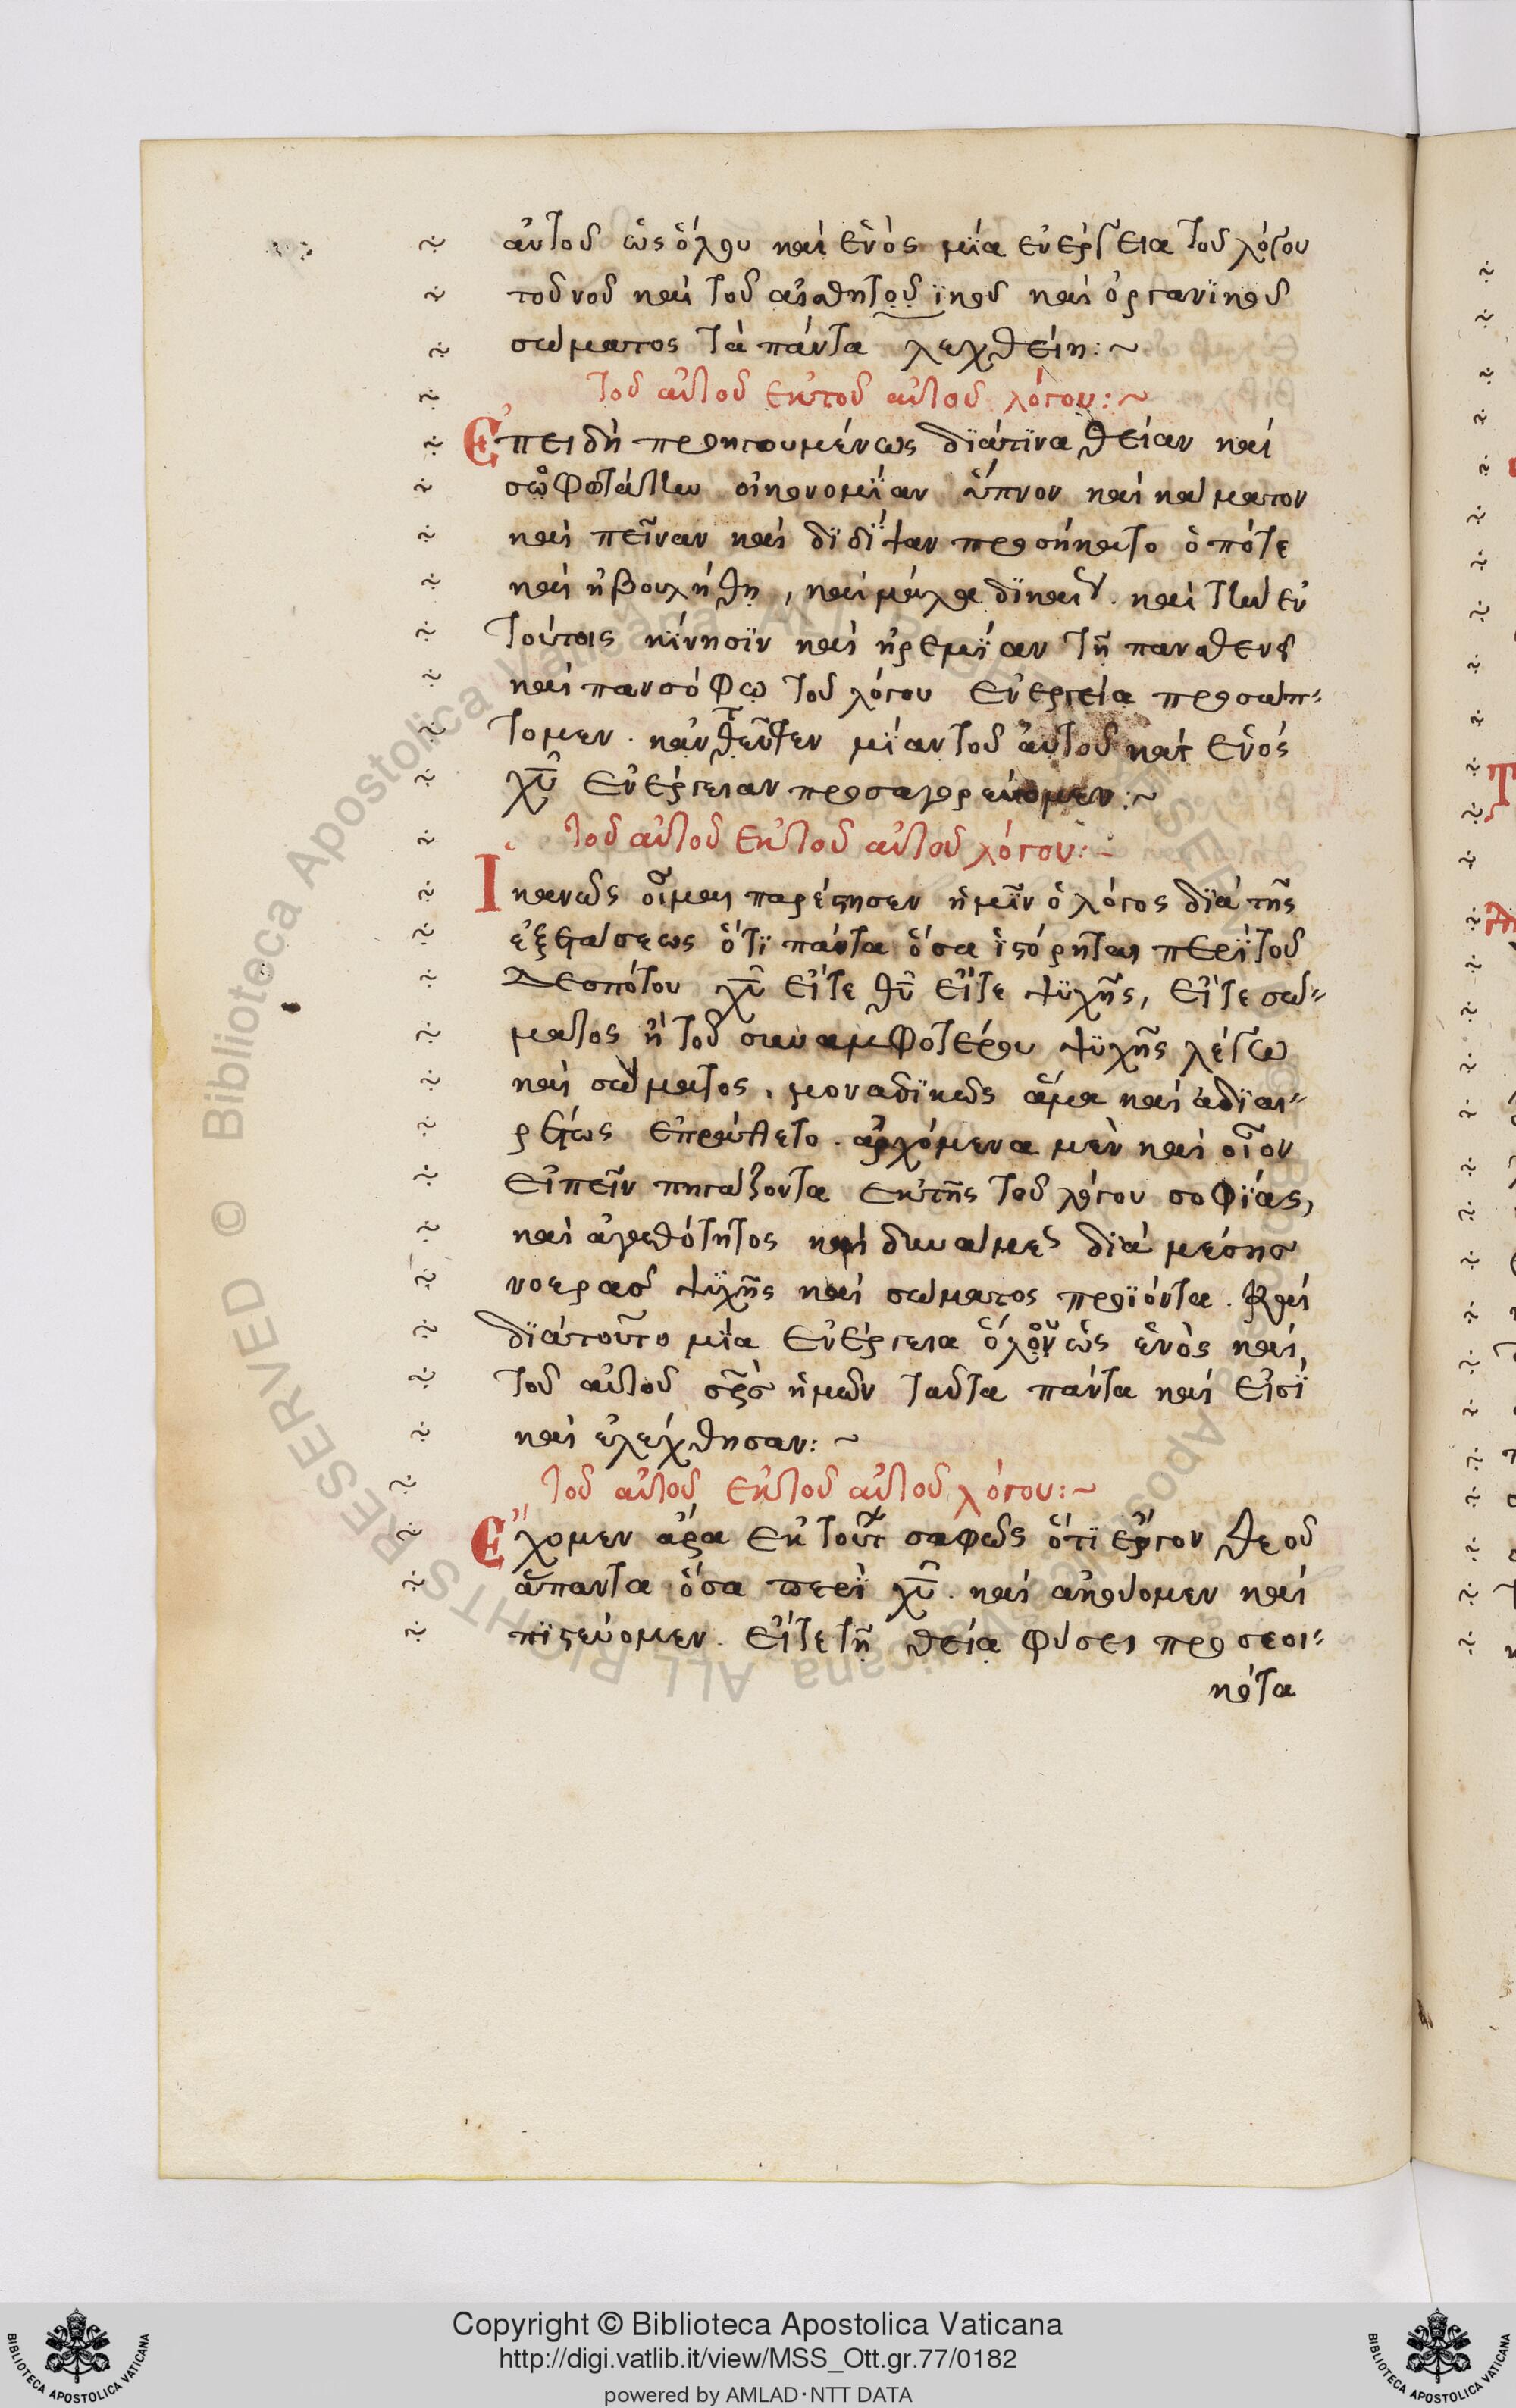 αὐτοῦ ὡς ὅλου καὶ ἑνὸς μία ἐνέργεια τοῦ λόγου
τοῦ νοῦ καὶ τοῦ αἰσθητοῦϊκοῦ καὶ ὀργανϊκοῦ
σώματος τὰ πάντα λεχθείη:~
τοῦ αὐτοῦ ἐκ τοῦ αὐτοῦ λόγου:~
Ἐπειδὴ προηγουμένως διά τινα θείαν καὶ
σοφωτάτην οἰκονομίαν ὕπνον καὶ κάματον
καὶ πεῖναν καὶ δίψαν προσήκατο ὁπότε
καὶ ἠβουλήθη, καὶ μάλα δικαί. καὶ τὴν ἐν
τούτοις κίνησιν καὶ ἠρεμίαν τῇ πανσθενεῖ
καὶ πανσόφω τοῦ λόγου ἐνεργεία προσάπ-
τομεν. κἀντεῦθεν μίαν τοῦ αὐτοῦ καὶ ἑνός
χυ ἐνέργειαν προσαγορεύομεν:~
τοῦ αὐτοῦ ἐκ τοῦ αὐτοῦ λόγου:~
Ἱκανῶς οἶμαι παρέστησεν ἡμῖν ὁ λόγος διὰ τῆς
ἐξετάσεως ὅτι πάντα ὅσα ἱστόρηται περὶ τοῦ
Δεσπότου χυ εἴτε θυ εἴτε ψυχῆς, εἴτε σώ-
ματος ἢ τοῦ συναμφοτέρου ψυχῆς λέγω
καὶ σώματος, μοναδικῶς ἅμα καὶ ἀδιαι-
ρέτως ἐπράττετο. ἀρχόμενα μὲν καὶ οἷον
εἰπεῖν πηγάζοντα ἐκ τῆς τοῦ λόγου σοφίας,
καὶ ἀγαθότητος καὶ δυνάμε διὰ μέσης
νοερᾶς ψυχῆς καὶ σώματος προϊόντα. Καὶ
διὰ τοῦτο μία ἐνέργεια ὅλου ὡς ἑνὸς καὶ,
τοῦ αὐτοῦ σρς ἡμῶν ταῦτα πάντα καὶ εἰσὶ
καὶ ἐλέχθησαν:~
τοῦ αὐτοῦ ἐκ τοῦ αὐτοῦ λόγου:~
Ἔχομεν ἄρα ἐκ τούτ σαφῶς ὅτι ἔργον θεοῦ
ἅπαντα ὅσα περὶ χυ. καὶ ἀκούομεν καὶ
πιστεύομεν. εἴτε τῇ θεία φύσει προσεοι-
κότα
Copyright © Biblioteca Apostolica Vaticana
http://digi.vatlib.it/view/MSS_Ott.gr.77/0182
powered by AMLAD·NTT DATA
BIBLIOTECA APOSTOLICA VATICANA
BIBLIOTECA APOSTOLICA VATICANA